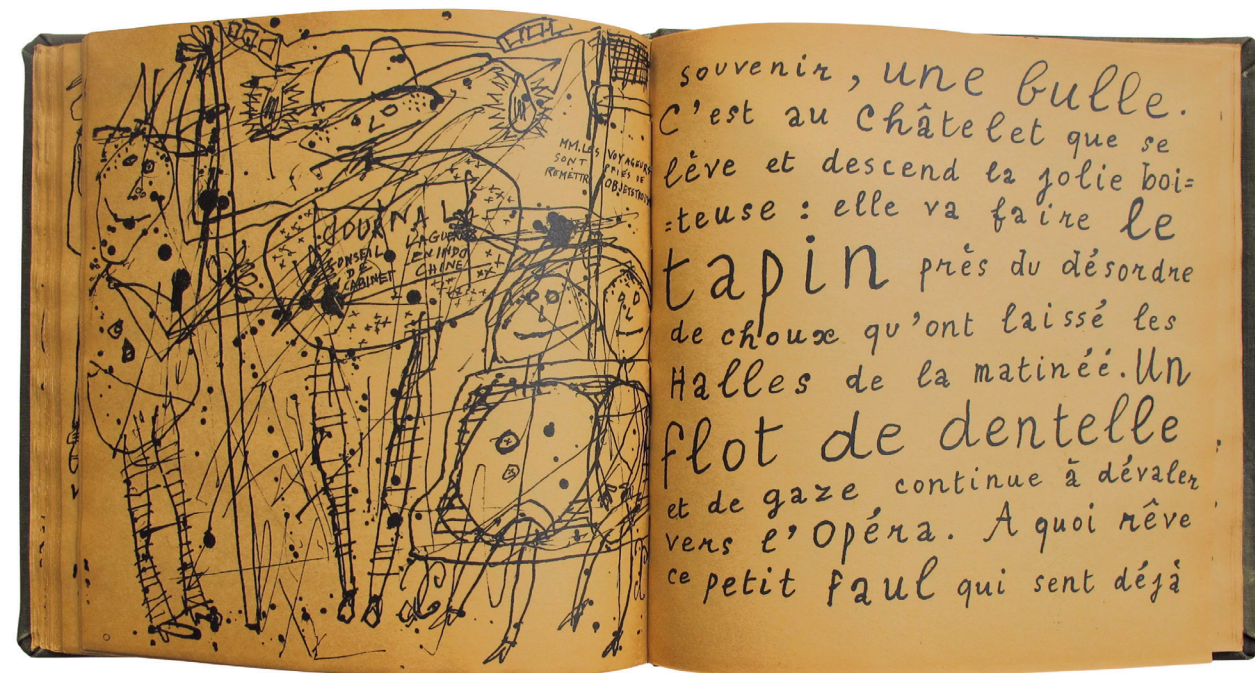 MM. LES VOYAGEURS
SONT PRIÉS DE
REMETTR OBJETSTROUV
JOURNAL
CONSEIL
DE
CABINET
LAGUER
EN INDO
CHINE
souvenir, une bulle.
C'est au Châtelet que se
lève et descend la jolie boi=
=teuse : elle va faire le
tapin près du désordre
de choux qu'ont laissé les
Halles de la matinéé. Un
flot de dentelle
et de gaze continue à dévaler
vers l'Opéra. A quoi rêve
ce petit faul qui sent déjà